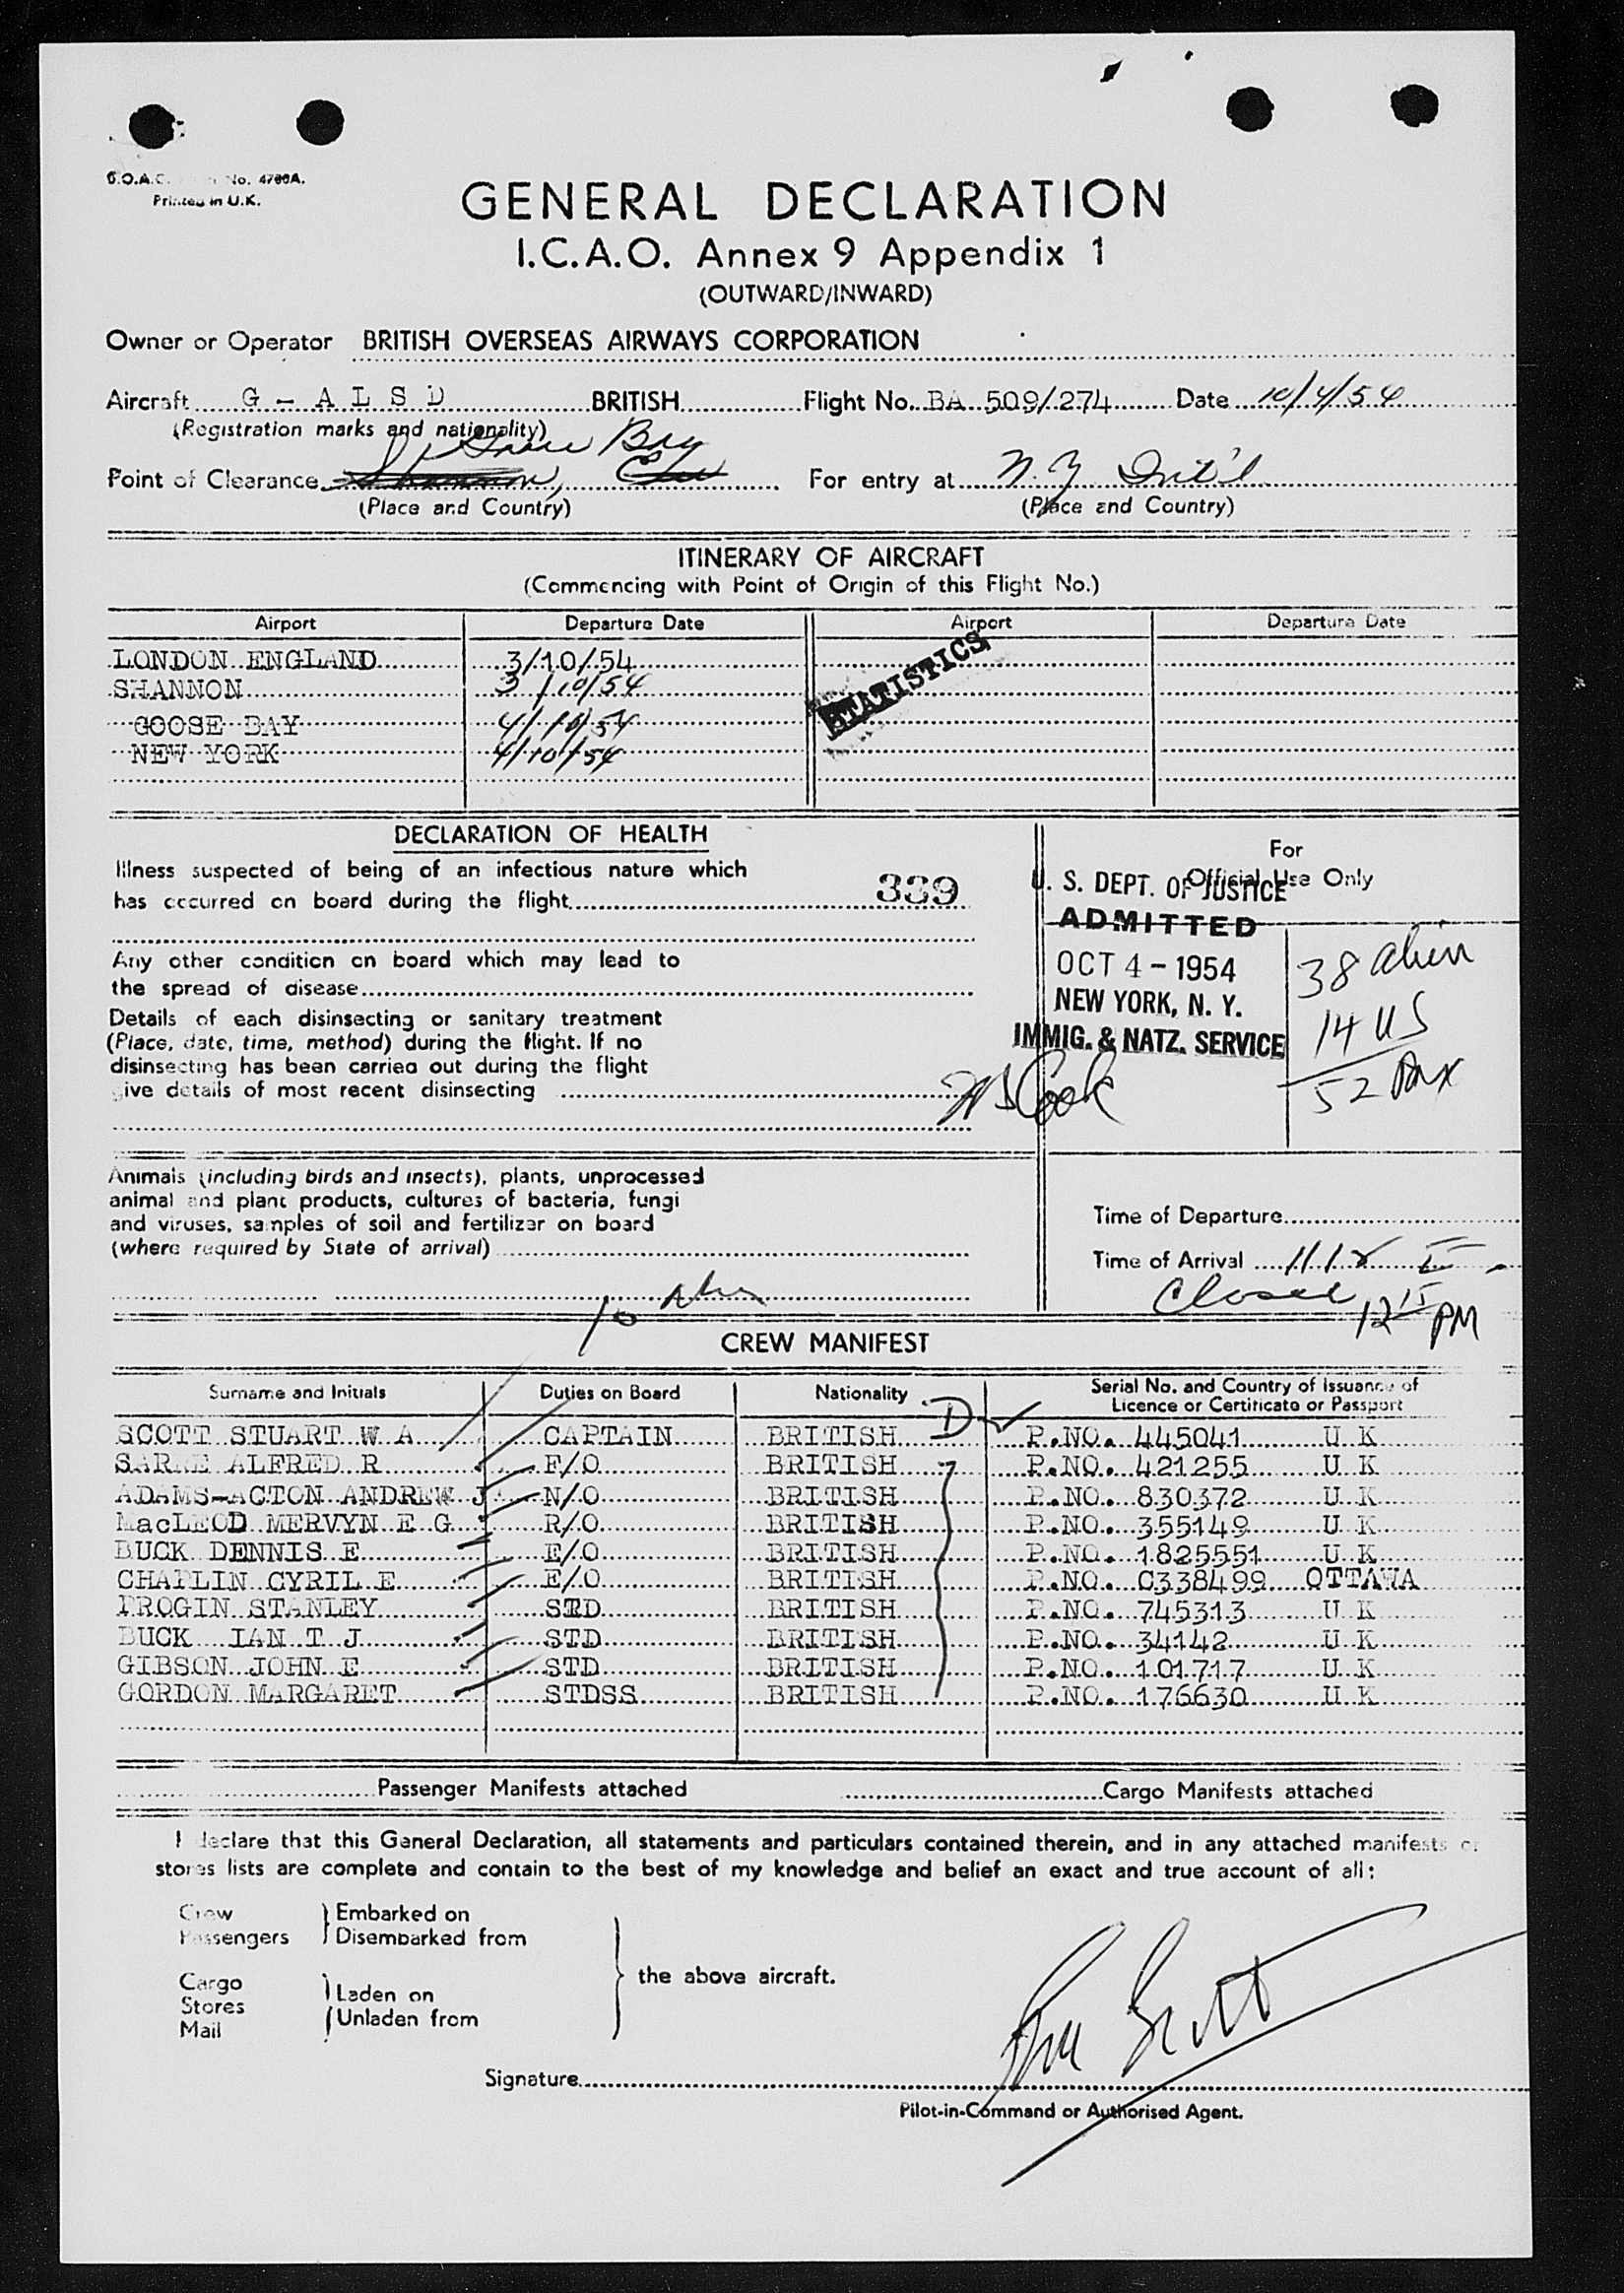 No. 4780A.
Printed in U.K.
GENERAL DECLARATION
I.C.A.O. Annex 9 Appendix 1
(OUTWARD/INWARD)
Owner or Operator BRITISH OVERSEAS AIRWAYS CORPORATION
Aircraft G - A L S D BRITISH Flight No. BA 509/274 Date 10/4/54
(Registration marks and nationality)
Goose Bay
Point of Clearance Shannon, For entry at N.Y. Int'l
(Place and Country) (Place and Country)
ITINERARY OF AIRCRAFT
(Commencing with Point of Origin of this Flight No.)
Airport Departure Date Airport Departure Date
LONDON ENGLAND 3/10/54
SHANNON 3/10/54
STATISTICS
GOOSE BAY 4/10/54
NEW YORK 4/10/54
DECLARATION OF HEALTH
Illness suspected of being of an infectious nature which
has occurred on board during the flight 339
Any other condition on board which may lead to
the spread of disease
Details of each disinsecting or sanitary treatment
(Place, date, time, method) during the flight. If no
disinsecting has been carried out during the flight
give details of most recent disinsecting
For
Official Use Only
U. S. DEPT. OF JUSTICE
ADMITTED
OCT 4 - 1954
NEW YORK, N. Y.
IMMIG. & NATZ. SERVICE
Cook
38 alien
14 US
52 Pax
Animals (including birds and insects), plants, unprocessed
animal and plant products, cultures of bacteria, fungi
and viruses, samples of soil and fertilizer on board
(where required by State of arrival)
Time of Departure
Time of Arrival 1112
Closed 12 15 PM
10
CREW MANIFEST
Surname and Initials Duties on Board Nationality Serial No. and Country of Issuance of
Licence or Certificate or Passport
D
SCOTT STUART W A CAPTAIN BRITISH P.NO. 445041 U K
ALFRED R F/O BRITISH P.NO. 421255 U K
ADAMS-ACTON ANDREW J N/O BRITISH P.NO. 830372 U K
MacLEOD MERVYN E G R/O BRITISH P.NO. 355149 U K
BUCK DENNIS E E/O BRITISH P.NO. 1825551 U K
CHAPLIN CYRIL E E/O BRITISH P.NO. C338499 OTTAWA
FROGIN STANLEY STD BRITISH P.NO. 745313 U K
BUCK IAN T J STD BRITISH P.NO. 34142 U K
GIBSON JOHN E STD BRITISH P.NO. 101717 U K
GORDON MARGARET STDSS BRITISH P.NO. 176630 U K
Passenger Manifests attached Cargo Manifests attached
I declare that this General Declaration, all statements and particulars contained therein, and in any attached manifests or
stores lists are complete and contain to the best of my knowledge and belief an exact and true account of all:
Crew Embarked on
Passengers Disembarked from
the above aircraft.
Cargo
Stores Laden on
Mail Unladen from
Signature
Pilot-in-Command or Authorised Agent.